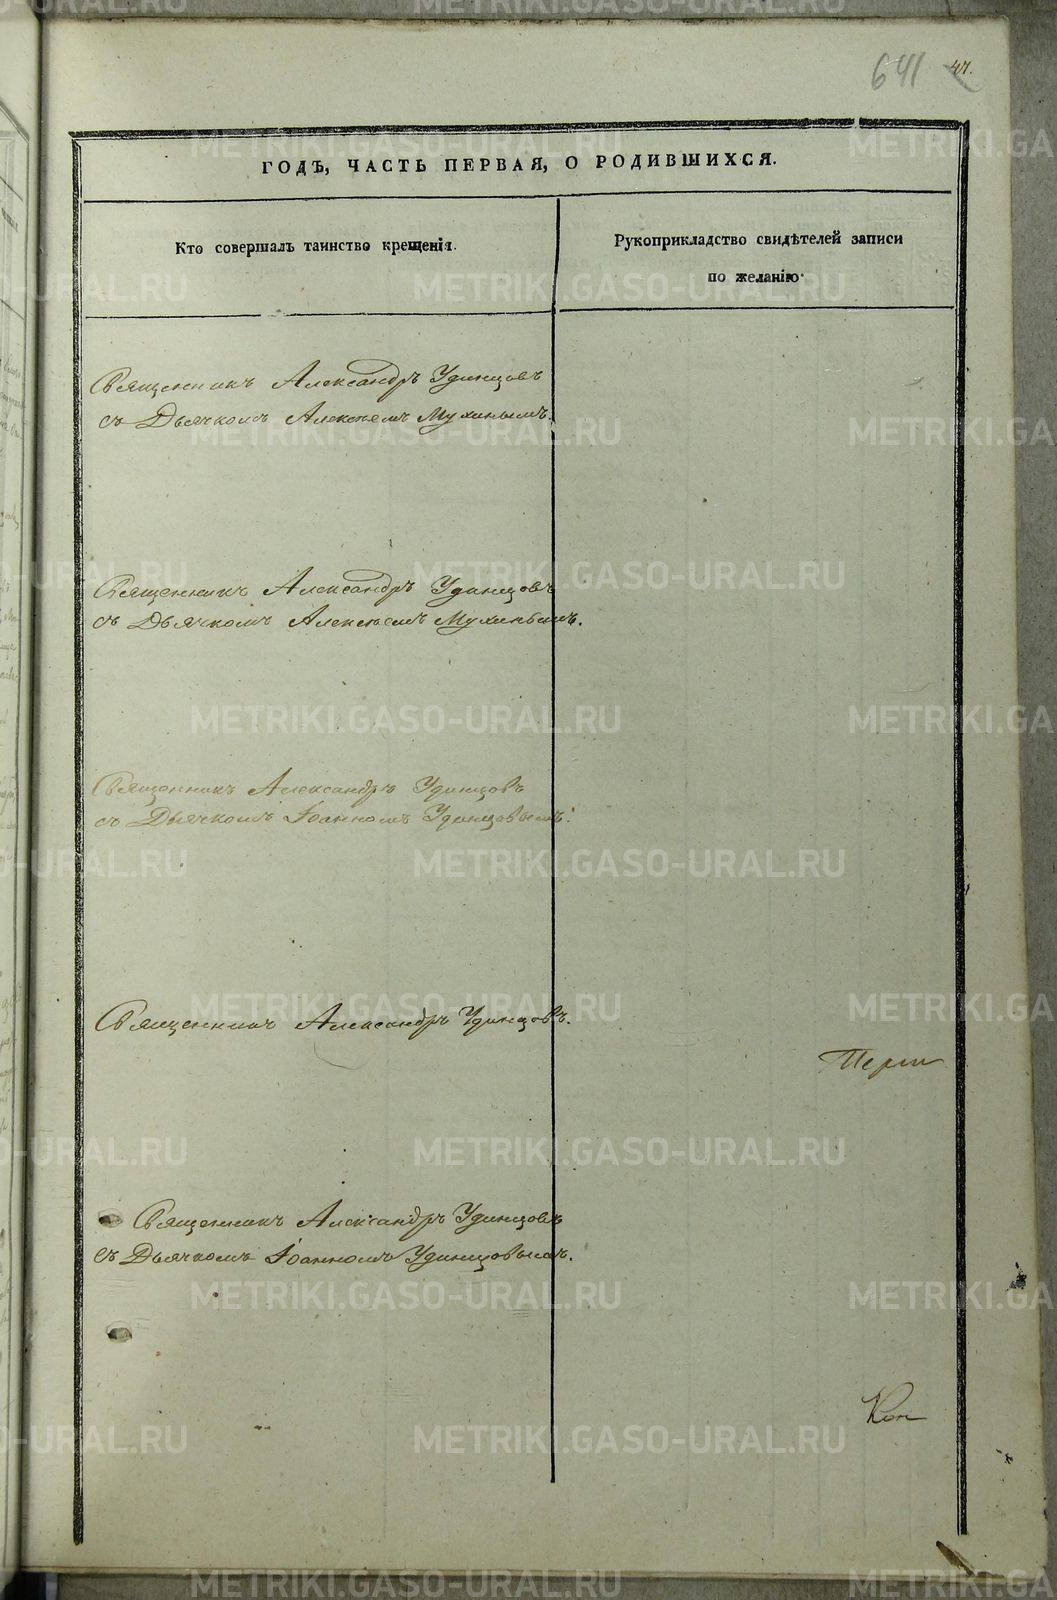 641 47.
ГОДЪ, ЧАСТЬ ПЕРВАЯ, О РОДИВШИХСЯ.
Кто совершалъ таинство крещенія.
Рукоприкладство свидѣтелей записи
по желанію
Священникъ Александръ Удинцовъ
съ Дьячкомъ Алексѣемъ Мухинымъ.
Священникъ Александръ Удинцовъ
съ Дьячкомъ Алексѣемъ Мухинымъ.
Священникъ Александръ Удинцовъ
съ Дьячкомъ Іоанномъ Удинцовымъ.
Священникъ Александръ Удинцовъ.
Священникъ Александръ Удинцовъ
съ Дьячкомъ Іоанномъ Удинцовымъ.
METRIKI.GASO-URAL.RU